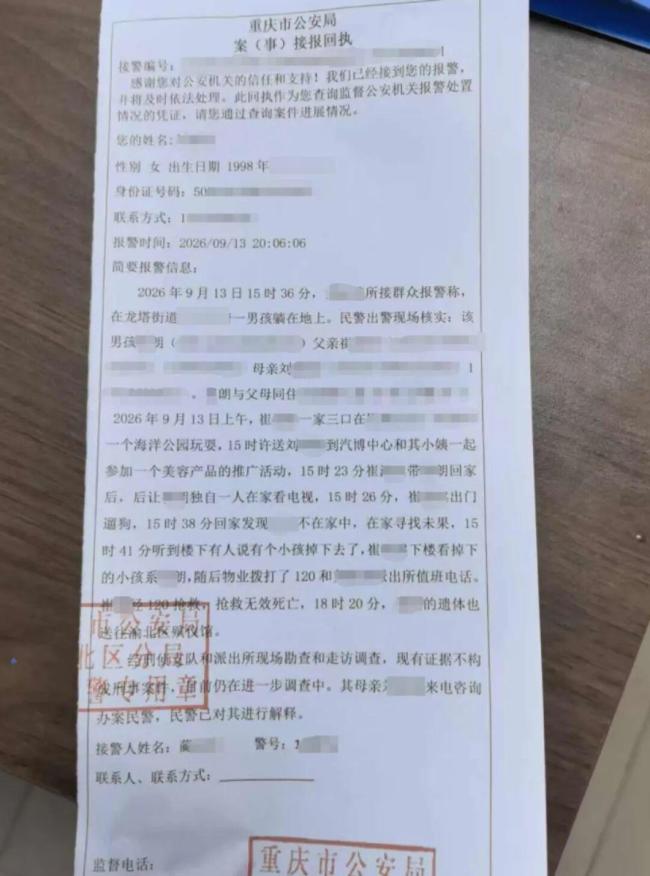 重庆市公安局
案（事）接报回执
接警编号：
感谢您对公安机关的信任和支持！我们已经接到您的报警，
并将及时依法处理。此回执作为您查询监督公安机关报警处置
情况的凭证，请您通过查询案件进展情况。
您的姓名：
性别 女 出生日期 1998年
身份证号码：50
联系方式：1
报警时间：2026/09/13 20:06:06
简要报警信息：
2026年9月13日15时36分，所接群众报警称，
在龙塔街道一男孩躺在地上。民警出警现场核实：该
男孩朗（）父亲崔
母亲刘1
。朗与父母同住
2026年9月13日上午，崔一家三口在
一个海洋公园玩耍，15时许送刘到汽博中心和其小姨一起
参加一个美容产品的推广活动，15时23分崔带朗回家
后，后让独自一人在家看电视，15时26分，出门
遛狗，15时38分回家发现不在家中，在家寻找未果，15
时41分听到楼下有人说有个小孩掉下去了，崔下楼看掉下
的小孩系朗，随后物业拨打了120和派出所值班电话。
崔经120抢救，抢救无效死亡，18时20分，的遗体也
送往渝北区殡仪馆。
经刑侦支队和派出所现场勘查和走访调查，现有证据不构
成刑事案件，目前仍在进一步调查中。其母亲来电咨询
办案民警，民警已对其进行解释。
接警人姓名： 警号：
联系人、联系方式：
监督电话：
市公安局
北区分局
警专用章
重庆市公安局